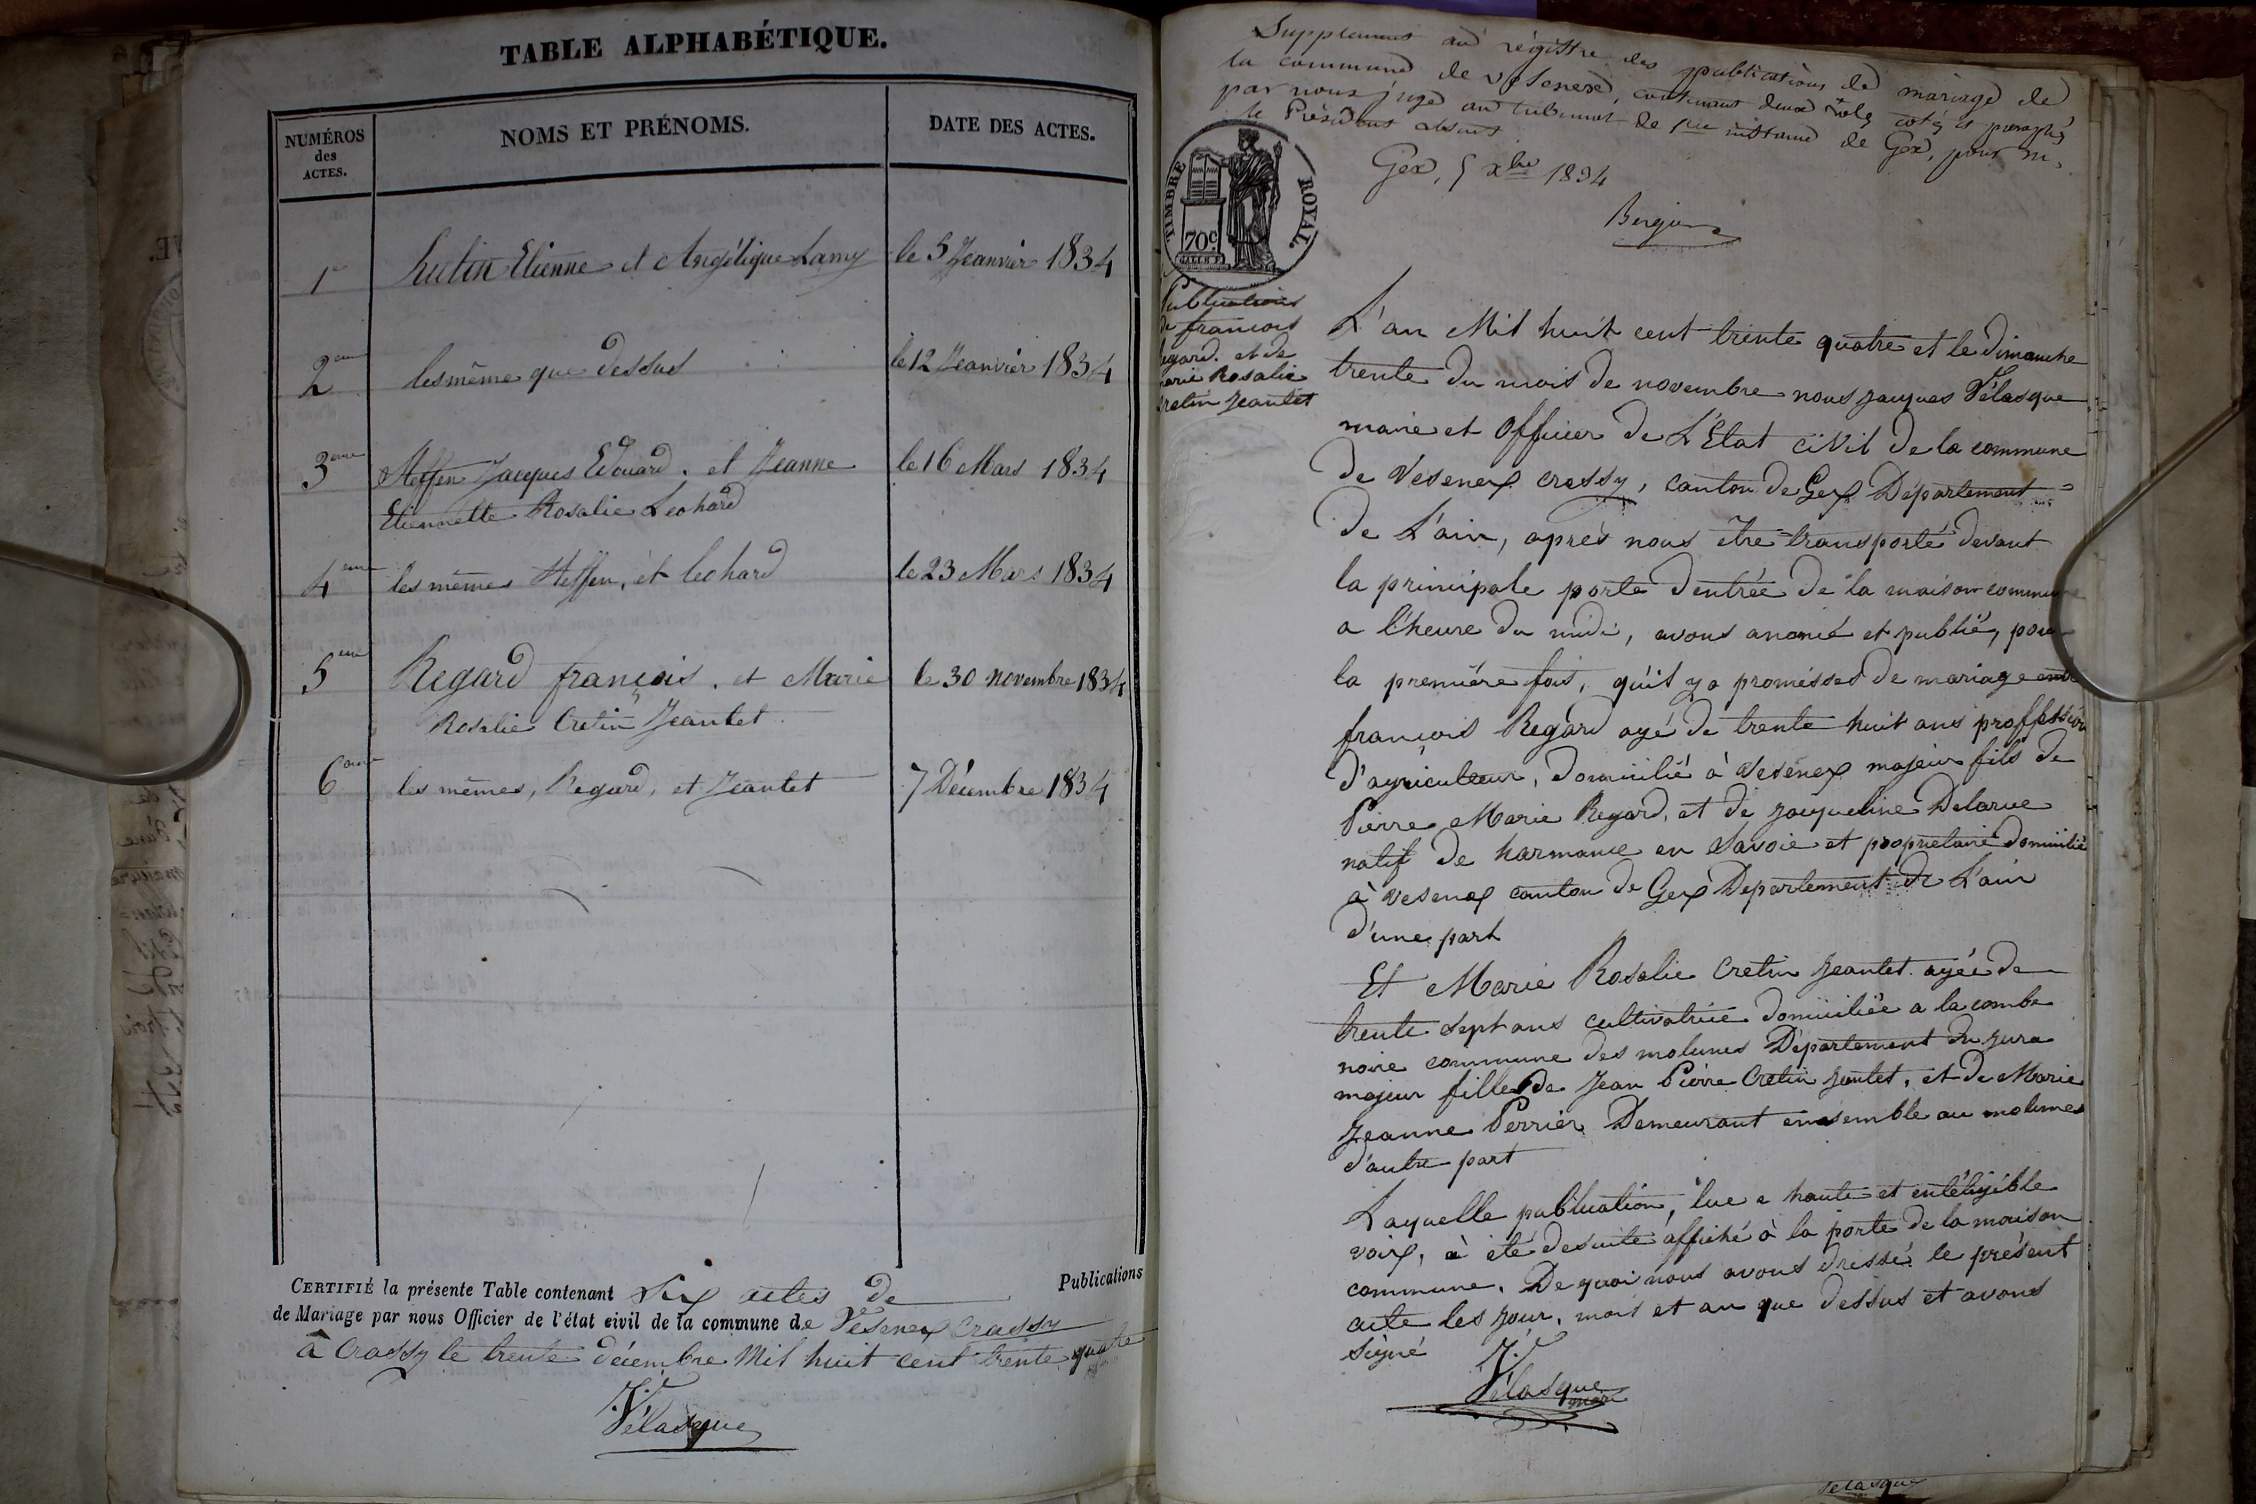 TABLE ALPHABÉTIQUE.
NUMÉROS
des
ACTES.
NOMS ET PRÉNOMS.
DATE DES ACTES.
1er Hutin Etienne et Angélique Lamy le 5 Jeanvier 1834
2eme les même que dessus le 12 Jeanvier 1834
3eme Steffen Jacques Edouard. et Jeanne le 16 Mars 1834
Etiennette Rosalie Leohard
4eme les mêmes Steffen, et leohard le 23 Mars 1834
5eme Regard françois. et Marie le 30 novembre 1834
Rosalie Cretin Jeantet
6eme les mêmes, Regard, et Jeantet 7 Décembre 1834
CERTIFIÉ la présente Table contenant Six actes de Publications
de Mariage par nous Officier de l'état civil de la commune de Vesenex Crassy
à Crassy le trente décembre Mil huit cent trente quatre
J. Vélasque
Supplement au régistre des publications de mariage de
la commune de vesenex, contenant deux rôles cotés et paraphés
par nous juge au tribunal de 1ere instance de Gex, pour M.
le Président absent
Gex, 5 xbre 1834
TIMBRE ROYAL.
70c.
Publications
de francois
Regard. et de
marie Rosalie
Cretin Jeantet
L'an Mil huit cent trente quatre et le dimanche
trente du mois de novembre nous Jacques Vélasque
maire et Officier de L'Etat civil de la commune
de Vesenex crassy, canton de Gex Département
de L'ain, après nous être transporté devant
la principale porte d'entrée de la maison commune
a l'heure du midi, avons anoncé et publié, pour
la première fois, qu'il y a promesses de mariage entre
françois Regard agé de trente huit ans proffession
d'agriculteur, domicilié à Vesenex majeur fils de
Pierre Marie Regard, et de Jacqueline Delarue
natif de hermance en Savoie et proprietaire domicilié
à Vesenex canton de Gex Departement de L'ain
d'une part
Et Marie Rosalie Cretin Jeantet agée de
trente sept ans cultivatrice domiciliée a la combe
noire commune des molunes Département du Jura
majeur fille de Jean Pierre Cretin Jantet, et de Marie
Jeanne Perrier Demeurant ensemble au molunes
d'autre part
Laquelle publication, lue a haute et entéligible
voix, à été desuite affiché à la porte de la maison
commune. De quoi nous avons dressé le présent
acte les jour, mois et an que dessus et avons
signé
J. Vélasque
maire
Velasque